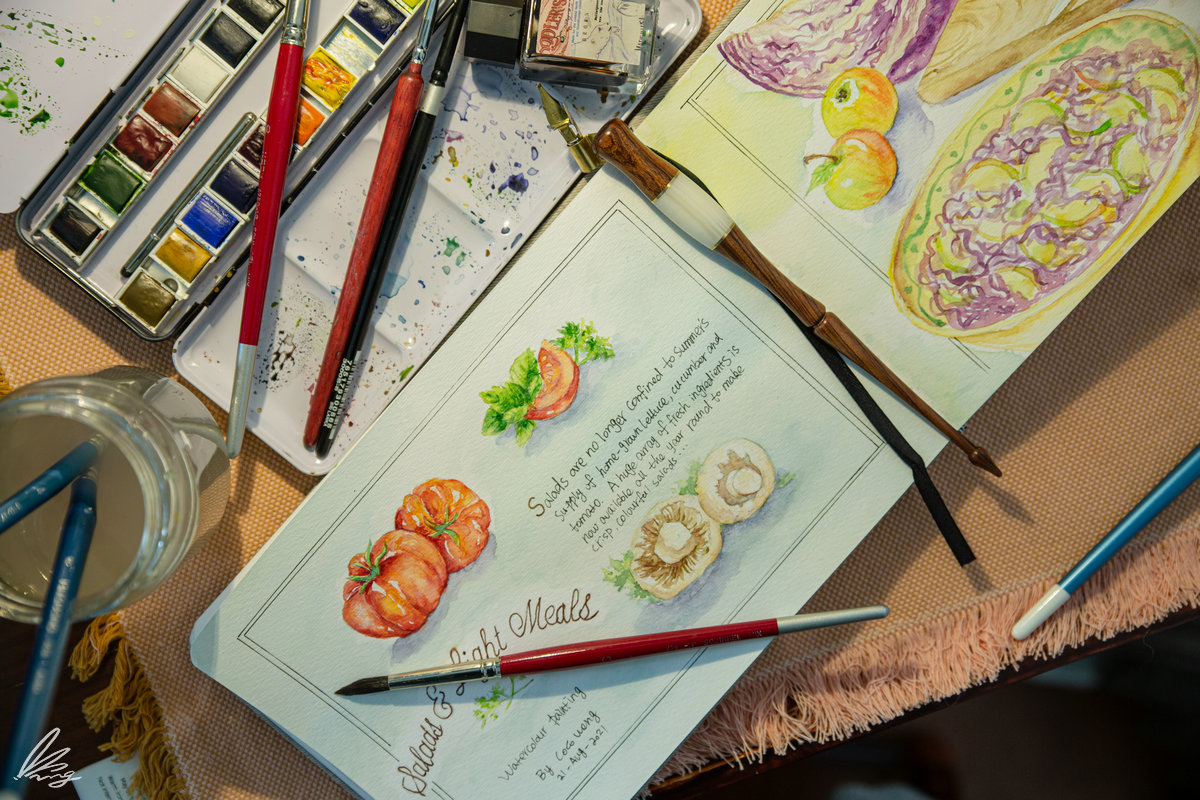 Salads are no longer confined to summer's
supply of home-grown lettuce, cucumber and
tomato. A huge array of fresh ingredients is
now available all the year round to make
crisp, colourful salads...
Salads & Light Meals
Watercolour Painting
By Coco Wong
21-Aug-2021